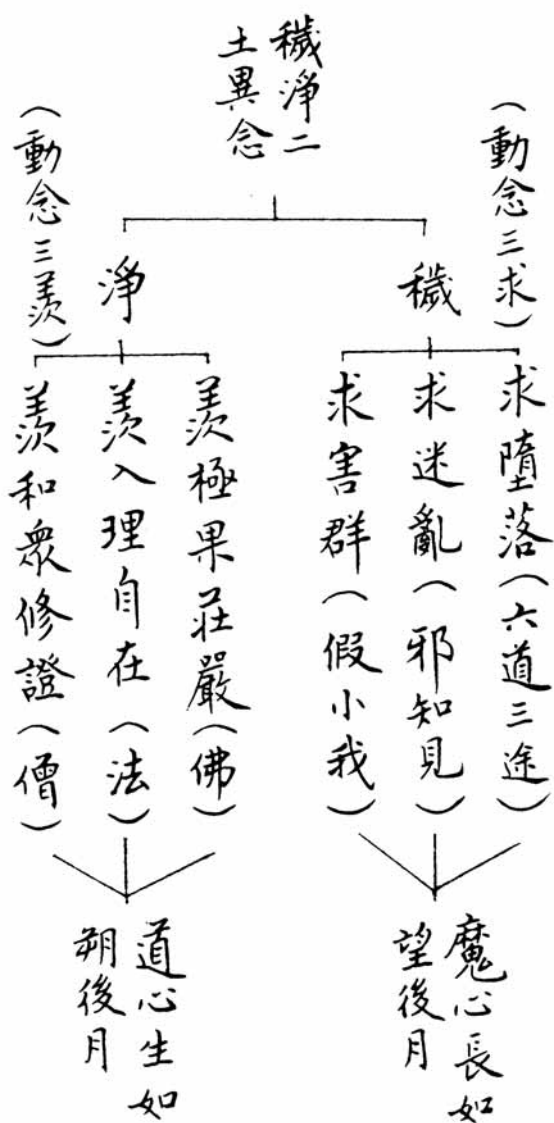 穢淨二
土異念
（動念三求）
穢
求墮落（六道三途）
求迷亂（邪知見）
求害群（假小我）
魔心長如
望後月
（動念三羨）
淨
羨極果莊嚴（佛）
羨入理自在（法）
羨和眾修證（僧）
道心生如
朔後月